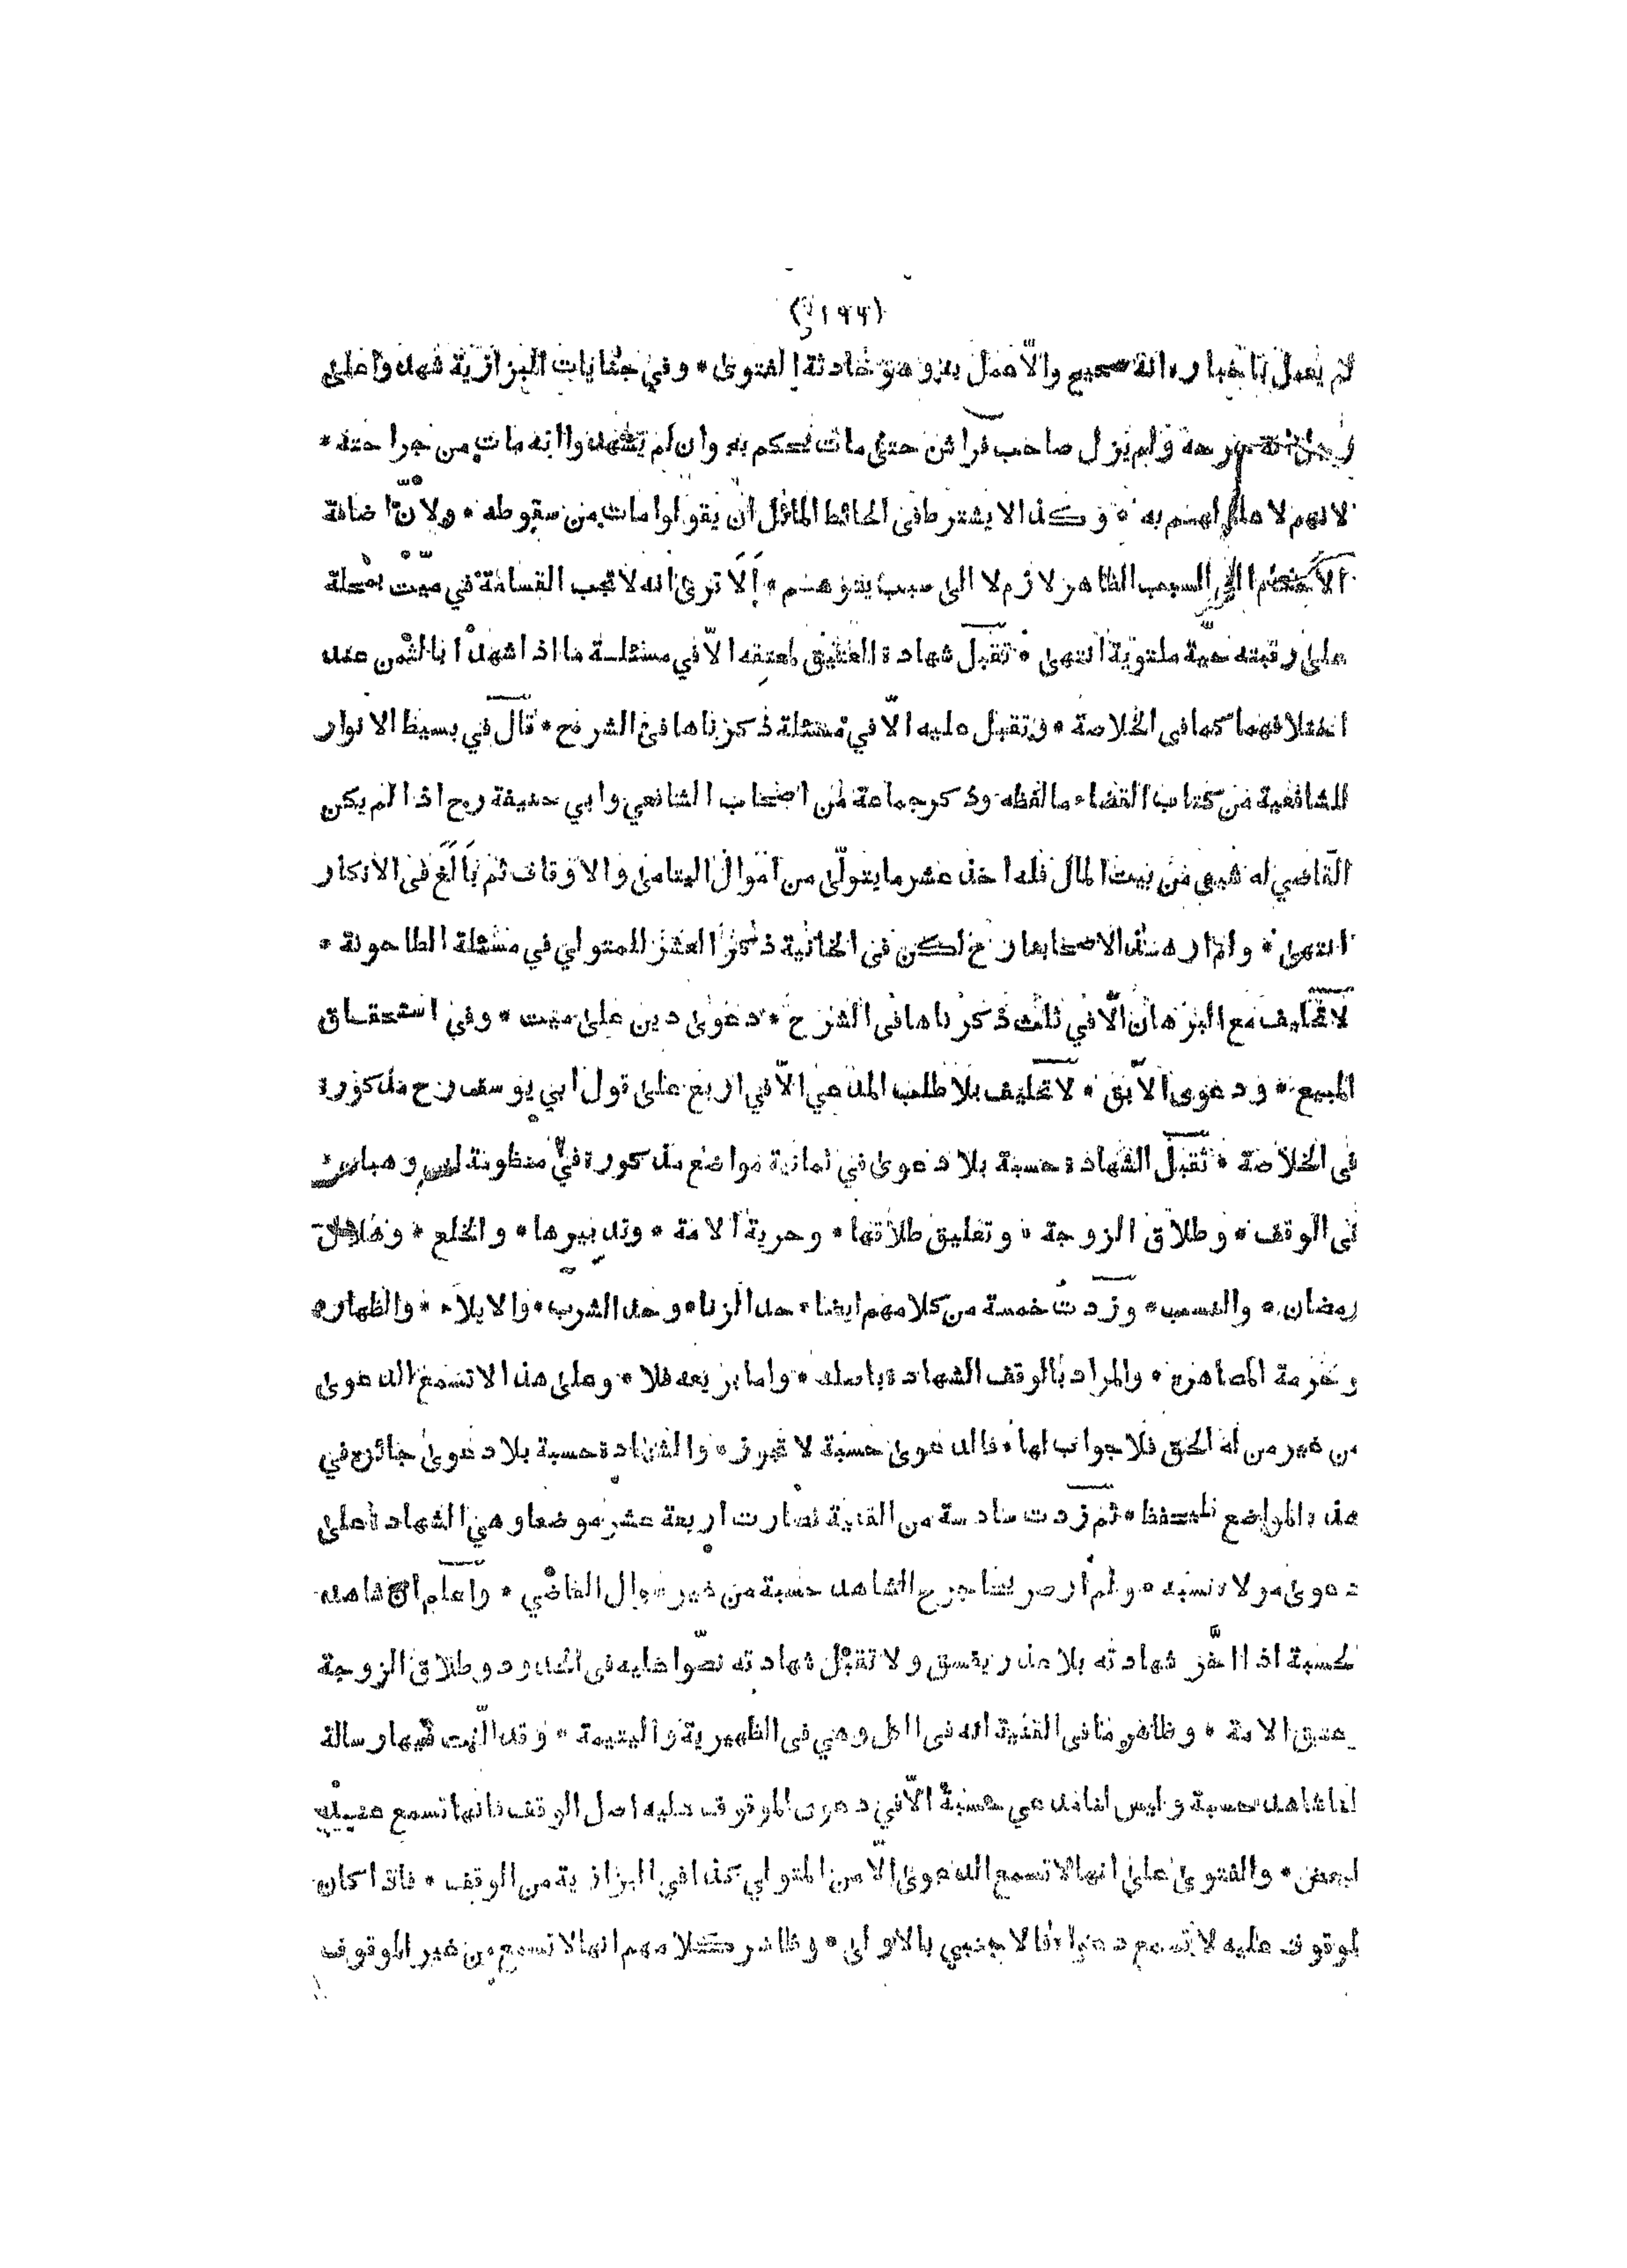 (١٩٤)
لم يعمل باخباره انه صحيح والّا عمل به وهو حادثة الفتوى * وفي جنايات البزازية شهدوا على
رجل انه جرحه ولم يزل صاحب فراش حتى مات يحكم به وان لم يشهدوا انه مات من جراحته *
لانهم لا علم لهم به * وكذا لا يشترط في الحائط المائل ان يقولوا مات من سقوطه * ولانّ اضافة
الاحكام الى السبب الظاهر لازم لا الى سبب يتوهم * ألا ترى انه لا تجب القسامة في ميّت بمحلة
على رقبته حيّة ملتوية انتهى * تقبل شهادة العتيق لمعتقه الّا في مسئلة ما اذا شهد انا لثمن عند
اختلافهما كما في الخلاصة * وتقبل عليه الّا في مسئلة ذكرناها في الشرح * قال في بسيط الانوار
للشافعية من كتاب القضاء ما لفظه وذكر جماعة من اصحاب الشافعي وابي حنيفة رح اذا لم يكن
القاضي له شيء من بيت المال فله اخذ عشر ما يتولّى من اموال اليتامى والاوقاف ثم بالغ في الانكار
انتهى * ولم ار هذا لاصحابنا رح لكن في الخانية ذكر العشر للمتولي في مسئلة الطاحونة *
لا تحليف مع البرهان الّا في ثلث ذكرناها في الشرح * دعوى دين على ميت * وفي استحقاق
المبيع * ودعوى الآبق * لا تحليف بلا طلب المدعي الّا في اربع على قول ابي يوسف رح مذكورة
في الخلاصة * تقبل الشهادة حسبة بلا دعوى في ثمانية مواضع مذكورة في منظومة ابن وهبان
في الوقف * وطلاق الزوجة * وتعليق طلاقها * وحرية الامة * وتدبيرها * والخلع * وهلال
رمضان * والنسب * وزدت خمسة من كلامهم ايضا * حد الزنا * وحد الشرب * والايلاء * والظهار *
وحرمة المصاهرة * والمراد بالوقف الشهادة باصله * واما بريعه فلا * وعلى هذا لا تسمع الدعوى
من غير من له الحق فلا جواب لها * فالدعوى حسبة لا تجوز * والشهادة حسبة بلا دعوى جائزة في
هذه المواضع فليحفظ * ثم زدت سادسة من القنية فصارت اربعة عشر موضعا وهي الشهادة على
دعوى مولاه نسبه * ولم ار صريحا جرح الشاهد حسبة من غير سوال القاضي * واعلم ان شاهد
لحسبة اذا اخّر شهادته بلا عذر يفسق ولا تقبل شهادته نصّوا عليه في الحدود وطلاق الزوجة
وعتق الامة * وظاهر ما في القنية انه في الكل وهي في الظهيرية واليتيمة * وقد الّفت فيها رسالة
لنا شاهد حسبة وليس لنا مدعي حسبة الّا في دعوى الموقوف عليه اصل الوقف فانها تسمع عند
لبعض * والفتوى على انها لا تسمع الدعوى الّا من المتولي كذا في البزازية من الوقف * فاذا كان
لموقوف عليه لا تسمع دعواه فالاجنبي بالاولى * وظاهر كلامهم انها لا تسمع من غير الموقوف